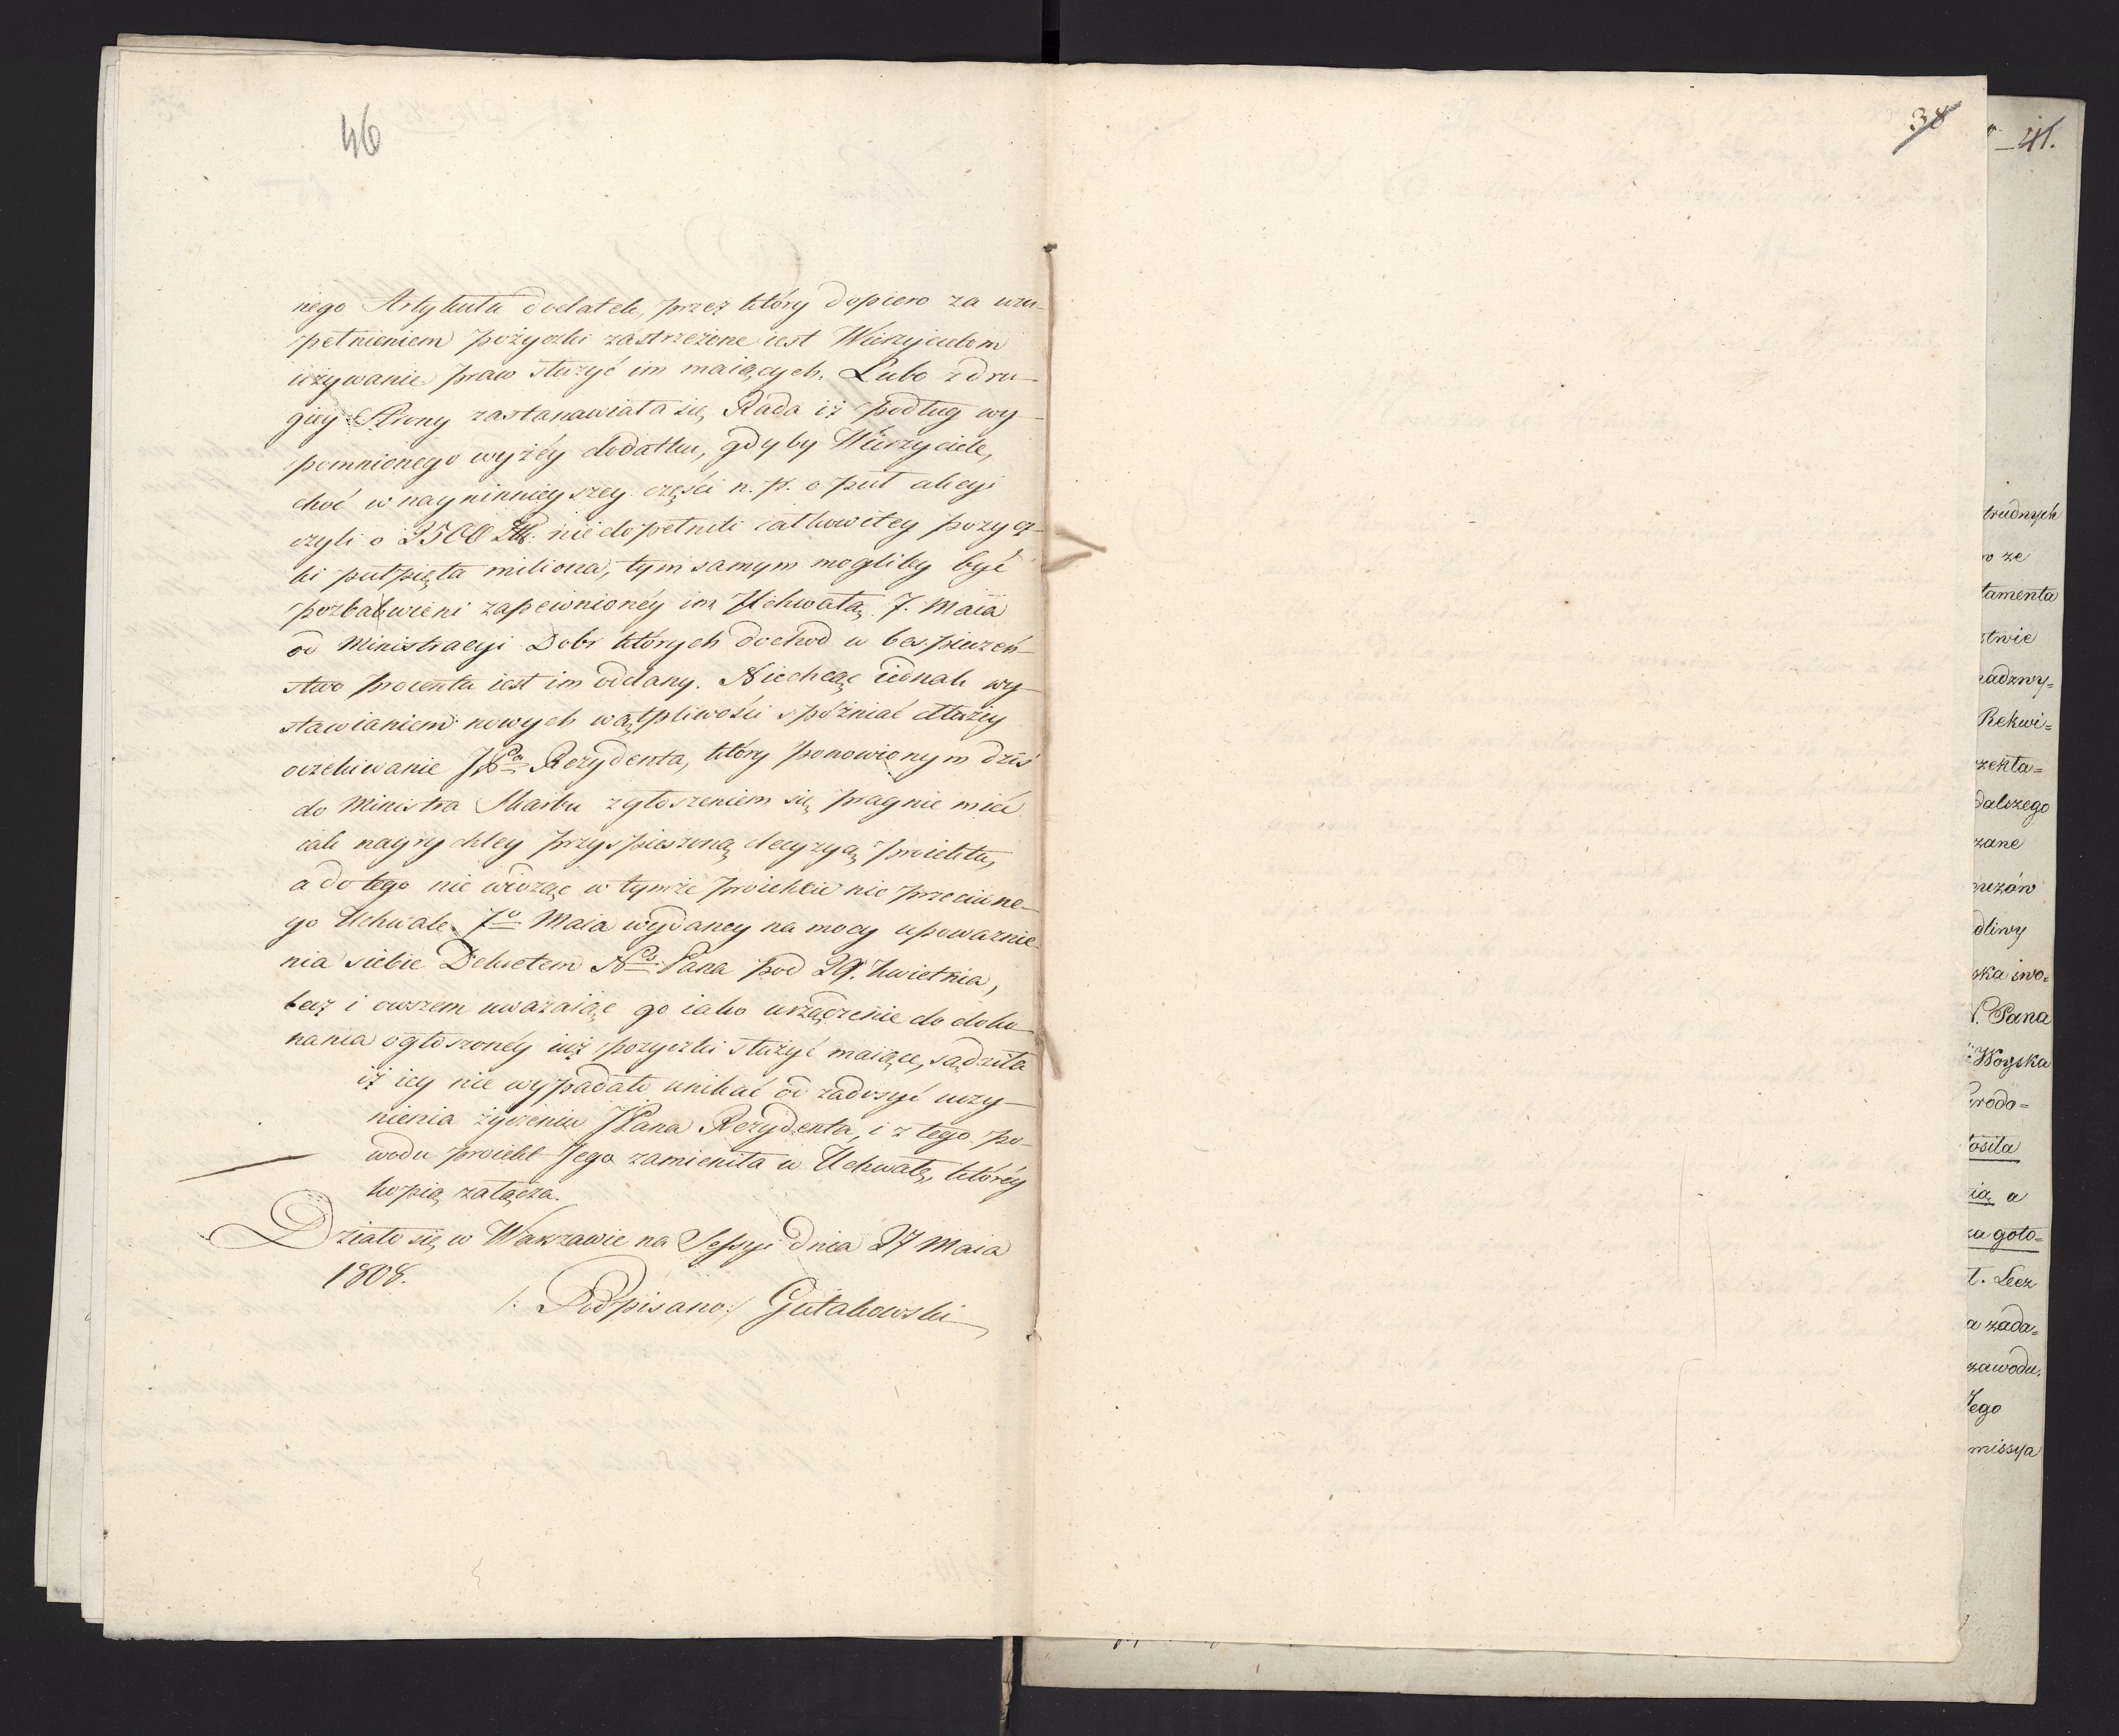 46
nego Artykułu dodatek, przez który dopiero za uzu-
pełnieniem pożyczki zastrzeżone iest Wierzycielom
używanie praw służyć im maiących. Lubo z dru-
giey Strony zastanawiała się Rada iż podług wy-
pomnionego wyżéy dodatku, gdyby Wierzyciele,
choć w nayninnieyszey części n. p. o puł akcyi
czyli o 2500 nie dopełnili całkowitey pożycz-
ki pułpięta miliona, tym samym mogliby być
pozbawieni zapewnionéy im Uchwałą 7. Maia
od Ministracyi Dobr których dochod w bespieczeń-
stwo procentu iest im oddany. Niechcąc iednak wy-
stawianiem nowych wątpliwości spóźniać dłużey
oczekiwanie JPa Rezydenta, który ponowionym dziś
do Ministra Skarbu zgłoszeniem się pragnie mieć
iak nayrychley przyspieszoną decyzyą proiektu,
a do tego nie widząc w tymże proiekcie nic przeciwne-
go Uchwale 7o Maia wydaney na mocy upoważnie-
nia siebie Dekretem Ngo Pana pod 29. kwietnia,
lecz i owszem uważaiąc go iako urządzenie do doko-
nania ogłoszonéy iuż pożyczki służyć maiące, sądziła
iż iey nie wypadało unikać od zadosyć uczy-
nienia życzeniu JPana Rezydenta, i z tego po-
wodu proiekt Jego zamieniła w Uchwałę, któréy
kopią załącza.
Działo się w Warszawie na Sessyi dnia 27 Maia
1808.
/: Podpisano:/ Gutakowski
38
41.
trudnych
ze
tamenta
stwie
nadzwy=
Rekwi=
zenta=
dalszego
zane
cuzów
dliwy
ska swo=
N. Pana
Woyska
wodo=
osiła
ią a
za goto=
t. Lecz
a zada=
zawodu.
Jego
missya